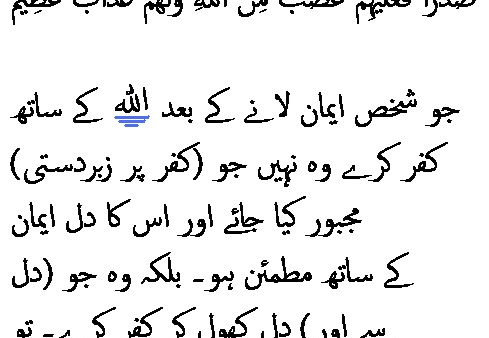 صدرا فعليهم غضب من الله ولهم عذاب عظيم
جو شخص ایمان لانے کے بعد الله کے ساتھ
کفر کرے وہ نہیں جو (کفر پر زبردستی)
مجبور کیا جائے اور اس کا دل ایمان
کے ساتھ مطمئن ہو۔ بلکہ وہ جو (دل
سے اور) دل کھول کر کفر کرے۔ تو